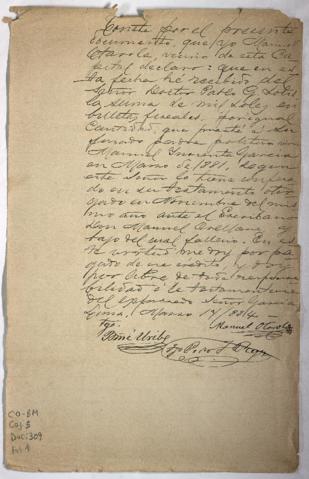 Conste por el presente
documento, que yo Manuel
Olavola, vecino de esta Ca
pital declaro: que en es
ta fecha hé recibido del
Señor Doctor Pablo G. Solis
la suma de mil soles en
billetes fiscales, por igual
cantidad, que presté á su
finado padre politico Don
Manuel Ynocente Garcia
en Marzo de 1881, segun
este Señor lo tiene
do en su testamento otor
gado en Noviembre del mis
mo año ante el Escribano
Don Manuel Orellana y
bajo del cual falleció. En es
ta virtud me doy por pa
gado de mi crédito y doy
por libre de toda responsa
bilidad á la testamentaria
del expresado Señor Garcia
Lima, Marzo 14/884-
Manuel Olavola
tgo.
José Uribe
tgo Pedro
CO-BM
Caj: 8
Doc: 309
Fol 1